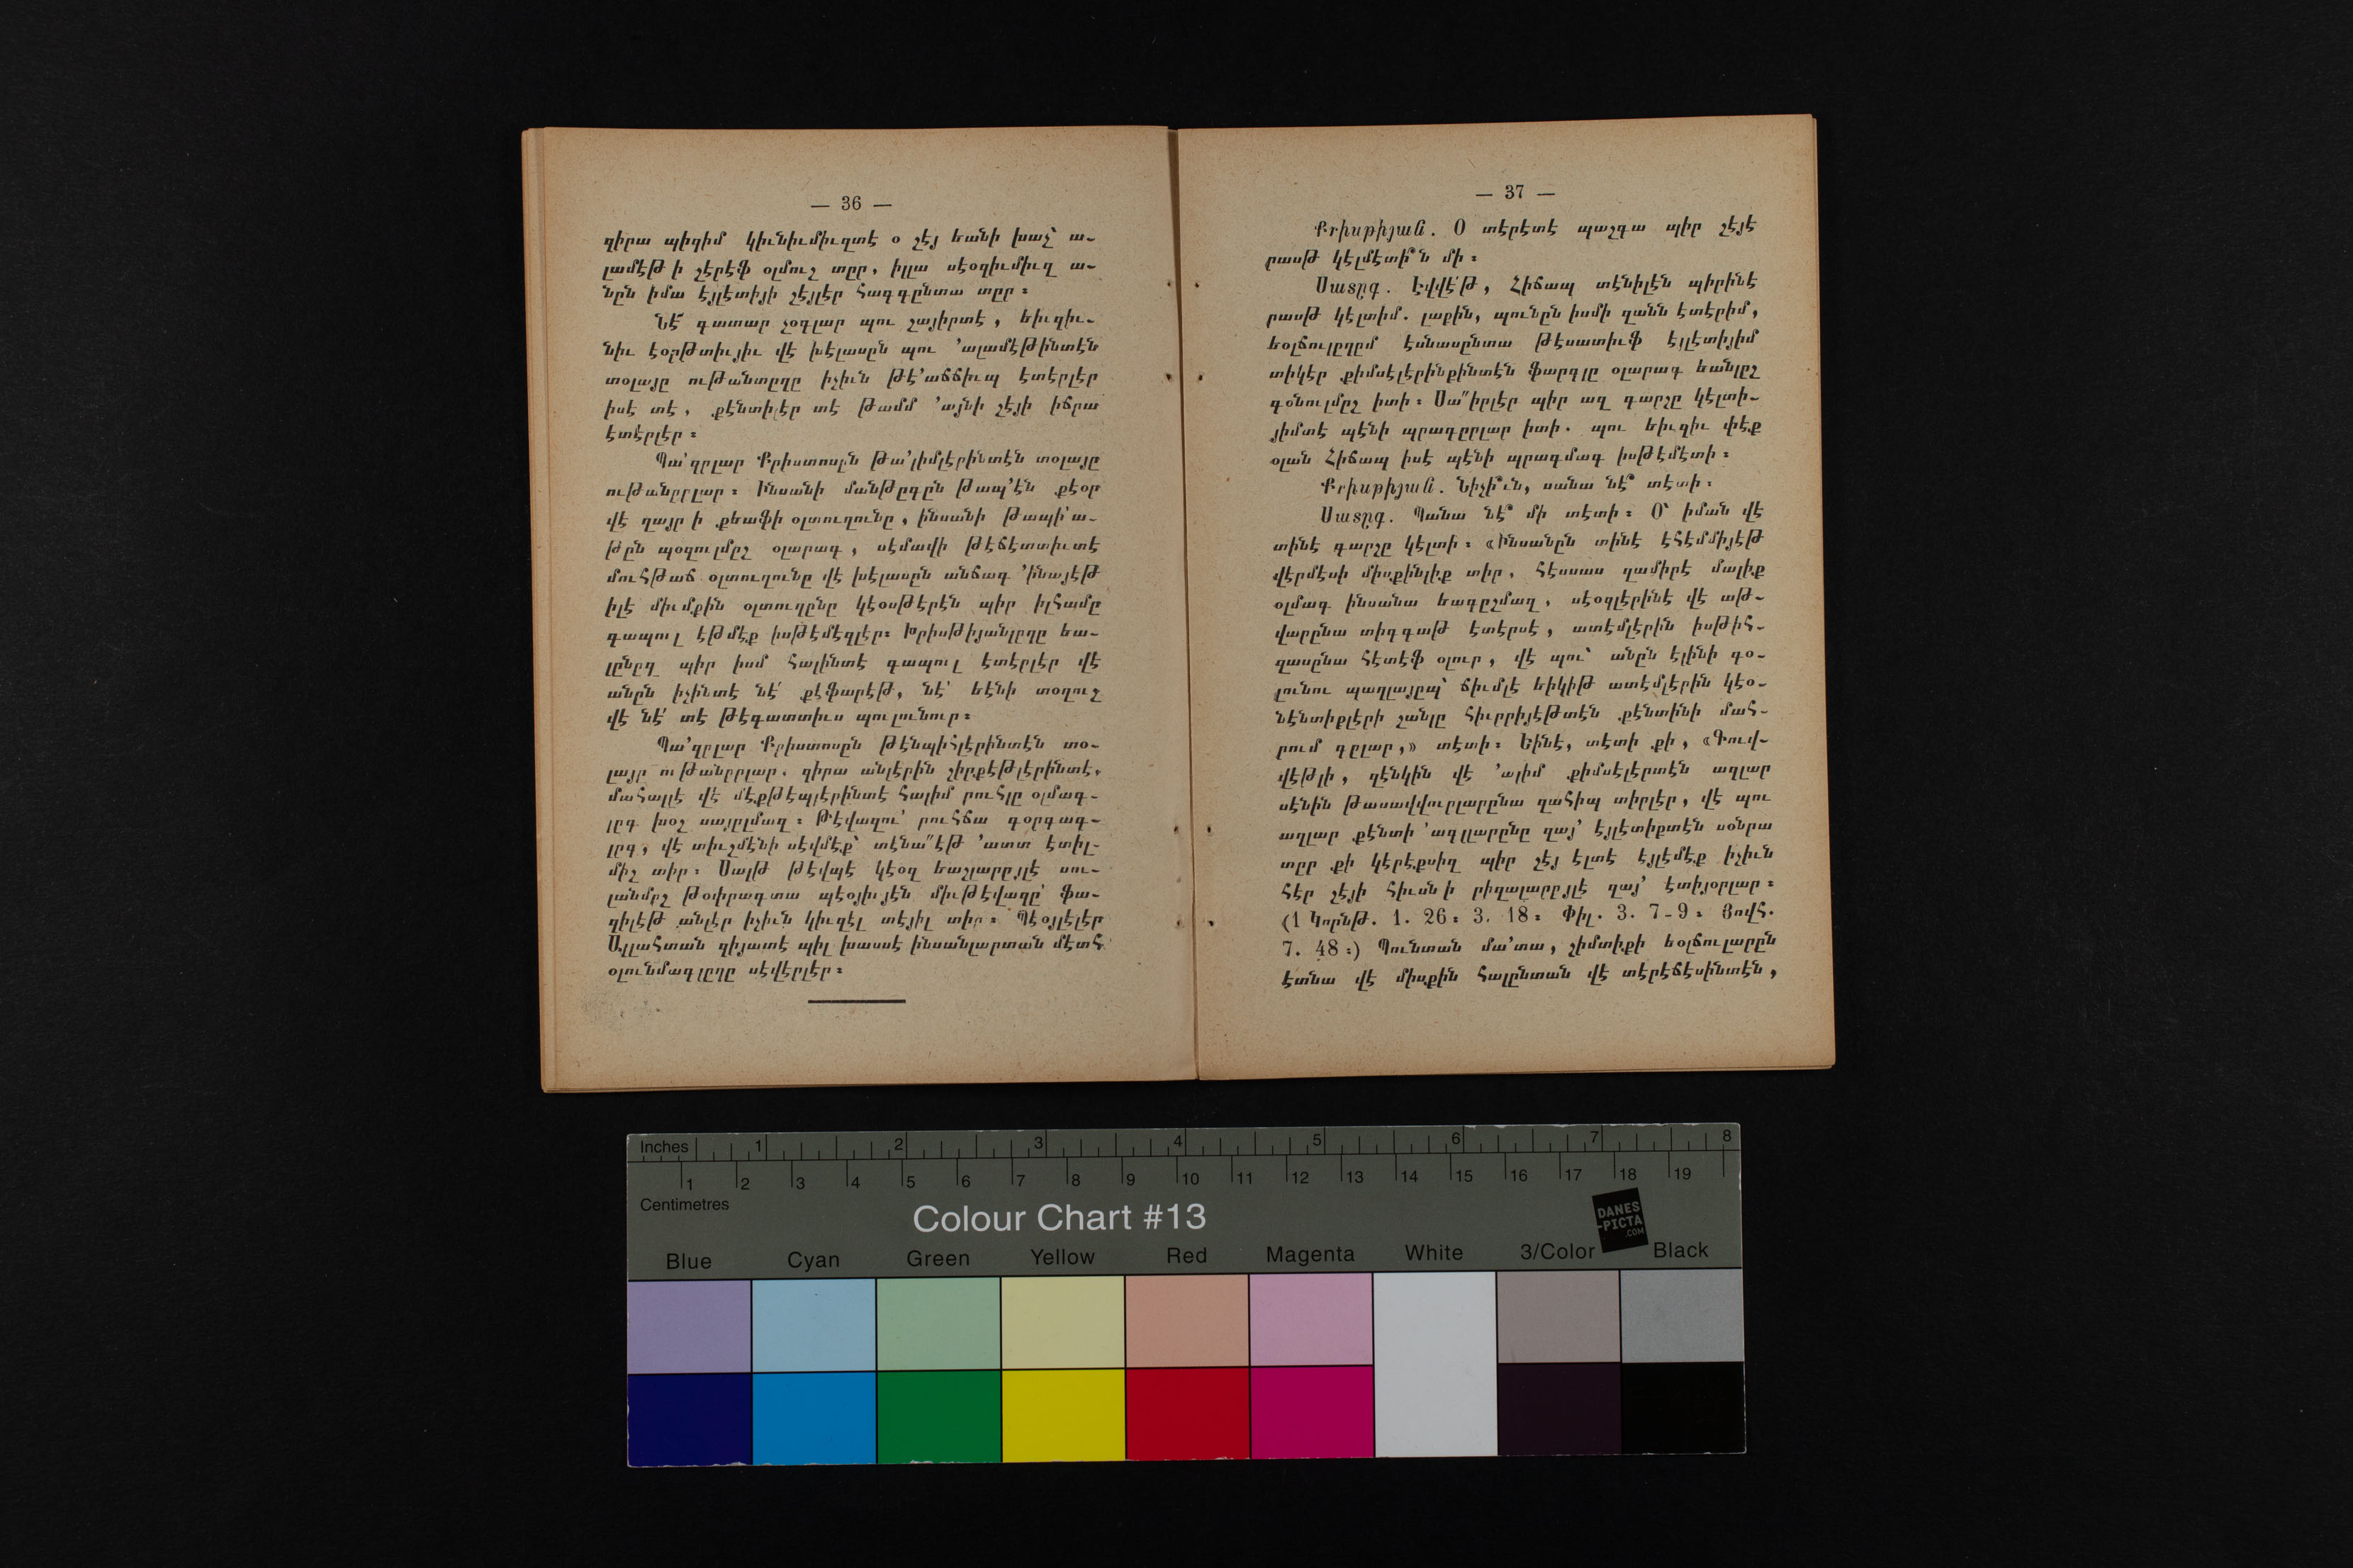 — 36 —
զիրա պիզիմ կիւնիւմիւզտէ օ շէյ եանի խաչ՝ ա-
լամէթ ի շէրէֆ օլմուշ տըր, իլլա սէօզիւմիւզ ա-
նըն իմա էյլէտիյի շէյլէր հագգընտա տըր։
Նէ՜ գատար չօգլար պու շայիրտէ, եիւզիւ-
նիւ էօրթտիւյիւ վէ խէլասըն պու ՚ալամէթինտէն
տօլայը ութանտըղը իչիւն թէ՚աճճիւպ էտէրլէր
իսէ տէ, քէնտիլէր տէ թամմ ՚այնի շէյի իճրա
էտէրլէր։
Պա՚զըլար Քրիստոսըն թա՚լիմլէրինտէն տօլայը
ութանըրլար։ Ինսանի մանթըգըն թապ՚էն քէօր
վէ ղայր ի քեաֆի օլտուղունը, ինսանի թապի՚ա-
թըն պօզուլմըշ օլարագ, սէմավի թէճէտտիւտէ
մուհթաճ օլտուղունը վէ խէլասըն անճագ ՚ինայէթ
իլէ միւմքին օլտուղընը կէօսթէրէն պիր իլհամը
գապուլ էթմէք իսթէմէզլէր։ Խրիսթիյանլըղը եա-
լընըզ պիր իսմ հալինտէ գապուլ էտէրլէր վէ
անըն իչինտէ նէ՛ քէֆարէթ, նէ՛ եէնի տօղուշ
վէ նէ՛ տէ թէգատտիւս պուլունուր։
Պա՚զըլար Քրիստոսըն թէնպիհլէրինտէն տօ-
լայը ութանըրլար. զիրա անլէրին շիրքէթլէրինտէ,
մահալլէ վէ մէքթէպլէրինտէ հալիմ րուհլը օլմագ-
լըգ խօշ սայըլմազ։ Թէվազու՚ րուհճա գօրգագ-
լըգ, վէ տիւշմէնի սէվմէք՝ տէնա՚՚էթ ՚ատտ էտիլ-
միշ տիր։ Սալթ թէվպէ կէօզ եաշլարըյլէ սու-
լանմըշ թօփրագտա պէօյիւյէն միւթէվազը՚ ֆա-
զիլէթ անլէր իչիւն կիւզէլ տէյիլ տիր։ Պէօյլէլէր
Ալլահտան զիյատէ պիլ խասսէ ինսանլարտան մէտհ
օլունմագլըղը սէվէրլէր։
— 37 —
Քրիսթիյան. Օ տէրէտէ պաշգա պիր շէյէ
րասթ կէլմէտի՞ն մի։
Սատըգ. Էվվէ՛թ, Հիճապ տէնիլէն պիրինէ
րասթ կէլտիմ. լաքին, պունըն իսմի զանն էտէրիմ,
եօլճուլըղըմ էսնասընտա թէսատիւֆ էյլէտիյիմ
տիկէր քիմսէլէրինքինտէն ֆարգլը օլարագ եանլըշ
գօնուլմըշ իտի։ Սա՚՚իրլէր պիր ազ գարշը կէլտի-
յիմտէ պէնի պրագըրլար իտի. պու եիւզիւ փէք
օլան Հիճապ իսէ պէնի պրագմագ իսթէմէտի։
Քրիսթիյան. Նիչի՞ւն, սանա նէ՞ տէտի։
Սատըգ. Պանա նէ՞ մի տէտի։ Օ՝ իման վէ
տինէ գարշը կէլտի։ «Ինսանըն տինէ էհէմմիյէթ
վէրմէսի միսքինլիք տիր, հէսսաս զամիրէ մալիք
օլմագ ինսանա եագըշմազ, սէօզլէրինէ վէ աթ-
վարընա տիգգաթ էտէրսէ, ատէմլէրին իսթիհ-
զասընա հէտէֆ օլուր, վէ պու՝ անըն էլինի գօ-
լունու պաղլայըպ՝ ճիւմլէ եիկիթ ատէմլէրին կէօ-
նէնտիքլէրի շանլը հիւրրիյէթտէն քէնտինի մահ-
րում գըլար,» տէտի։ Եինէ, տէտի քի, «Գուվ-
վէթլի, զէնկին վէ ՚ալիմ քիմսէլէրտէն ազլար
սէնին թասավվուրլարընա զահիպ տիրլէր, վէ պու
ազլար քէնտի ՚ագլլարընը զայ՚ էյլէտիքտէն սօնրա
տըր քի կէրէքսիզ պիր շէյ էլտէ էյլէմէք իչիւն
հէր շէյի հիւսն ի րիզալարըյլէ զայ՚ էտիյօրլար։
(1 Կորնթ. 1. 26։ 3. 18։ Փիլ. 3. 7-9։ Յովհ.
7. 48։) Պունտան մա՚տա, շիմտիքի եօլճուլարըն
էտնա վէ միսքին հալընտան վէ տէրէճէսինտէն,
Inches 1 2 3 4 5 6 7 8
1 2 3 4 5 6 7 8 9 10 11 12 13 14 15 16 17 18 19
Centimetres
Colour Chart #13
DANES
-PICTA
.COM
Blue Cyan Green Yellow Red Magenta White 3/Color Black